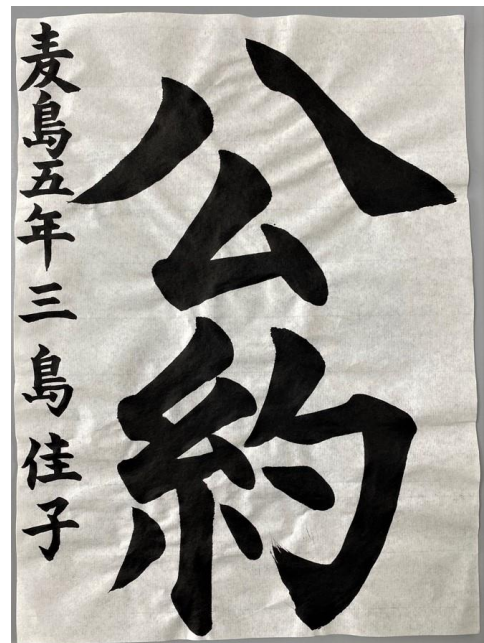 公約
麦島五年三島佳子